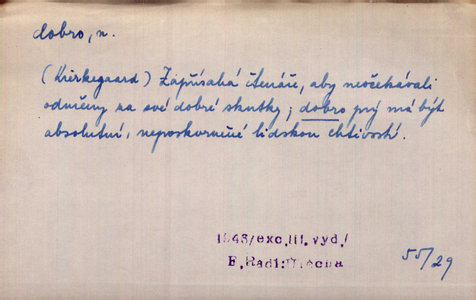 dobro, n.
(Kierkegaard) Zapřísahá čtenáře, aby neočekávali
odměny za své dobré skutky; dobro prý má být
absolutní, neposkvrněné lidskou chtivostí.
1948/exc. III. vyd./
E. Rádl: Útěcha
55/29